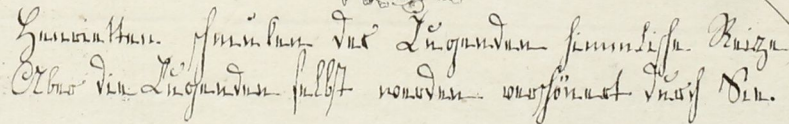 Henrietten schmüken der Tugenden himmlische Reize
Aber die Tugenden selbst werden verschönert durch Sie.